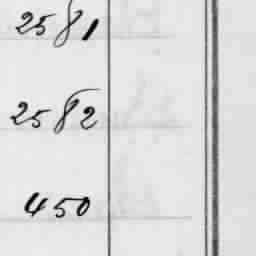 2581
2582
450